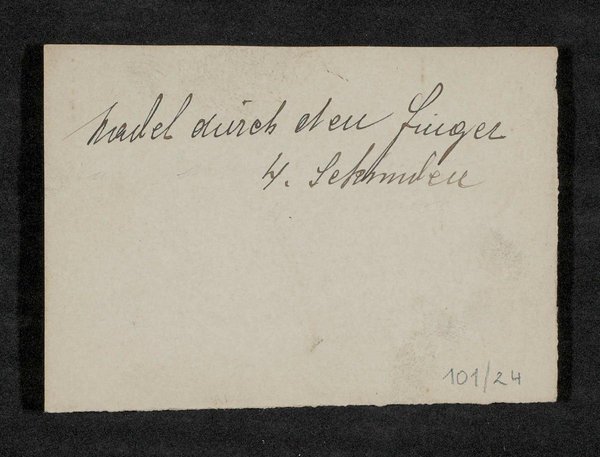 Nadel durch den Finger
4. Sekunden
101/24